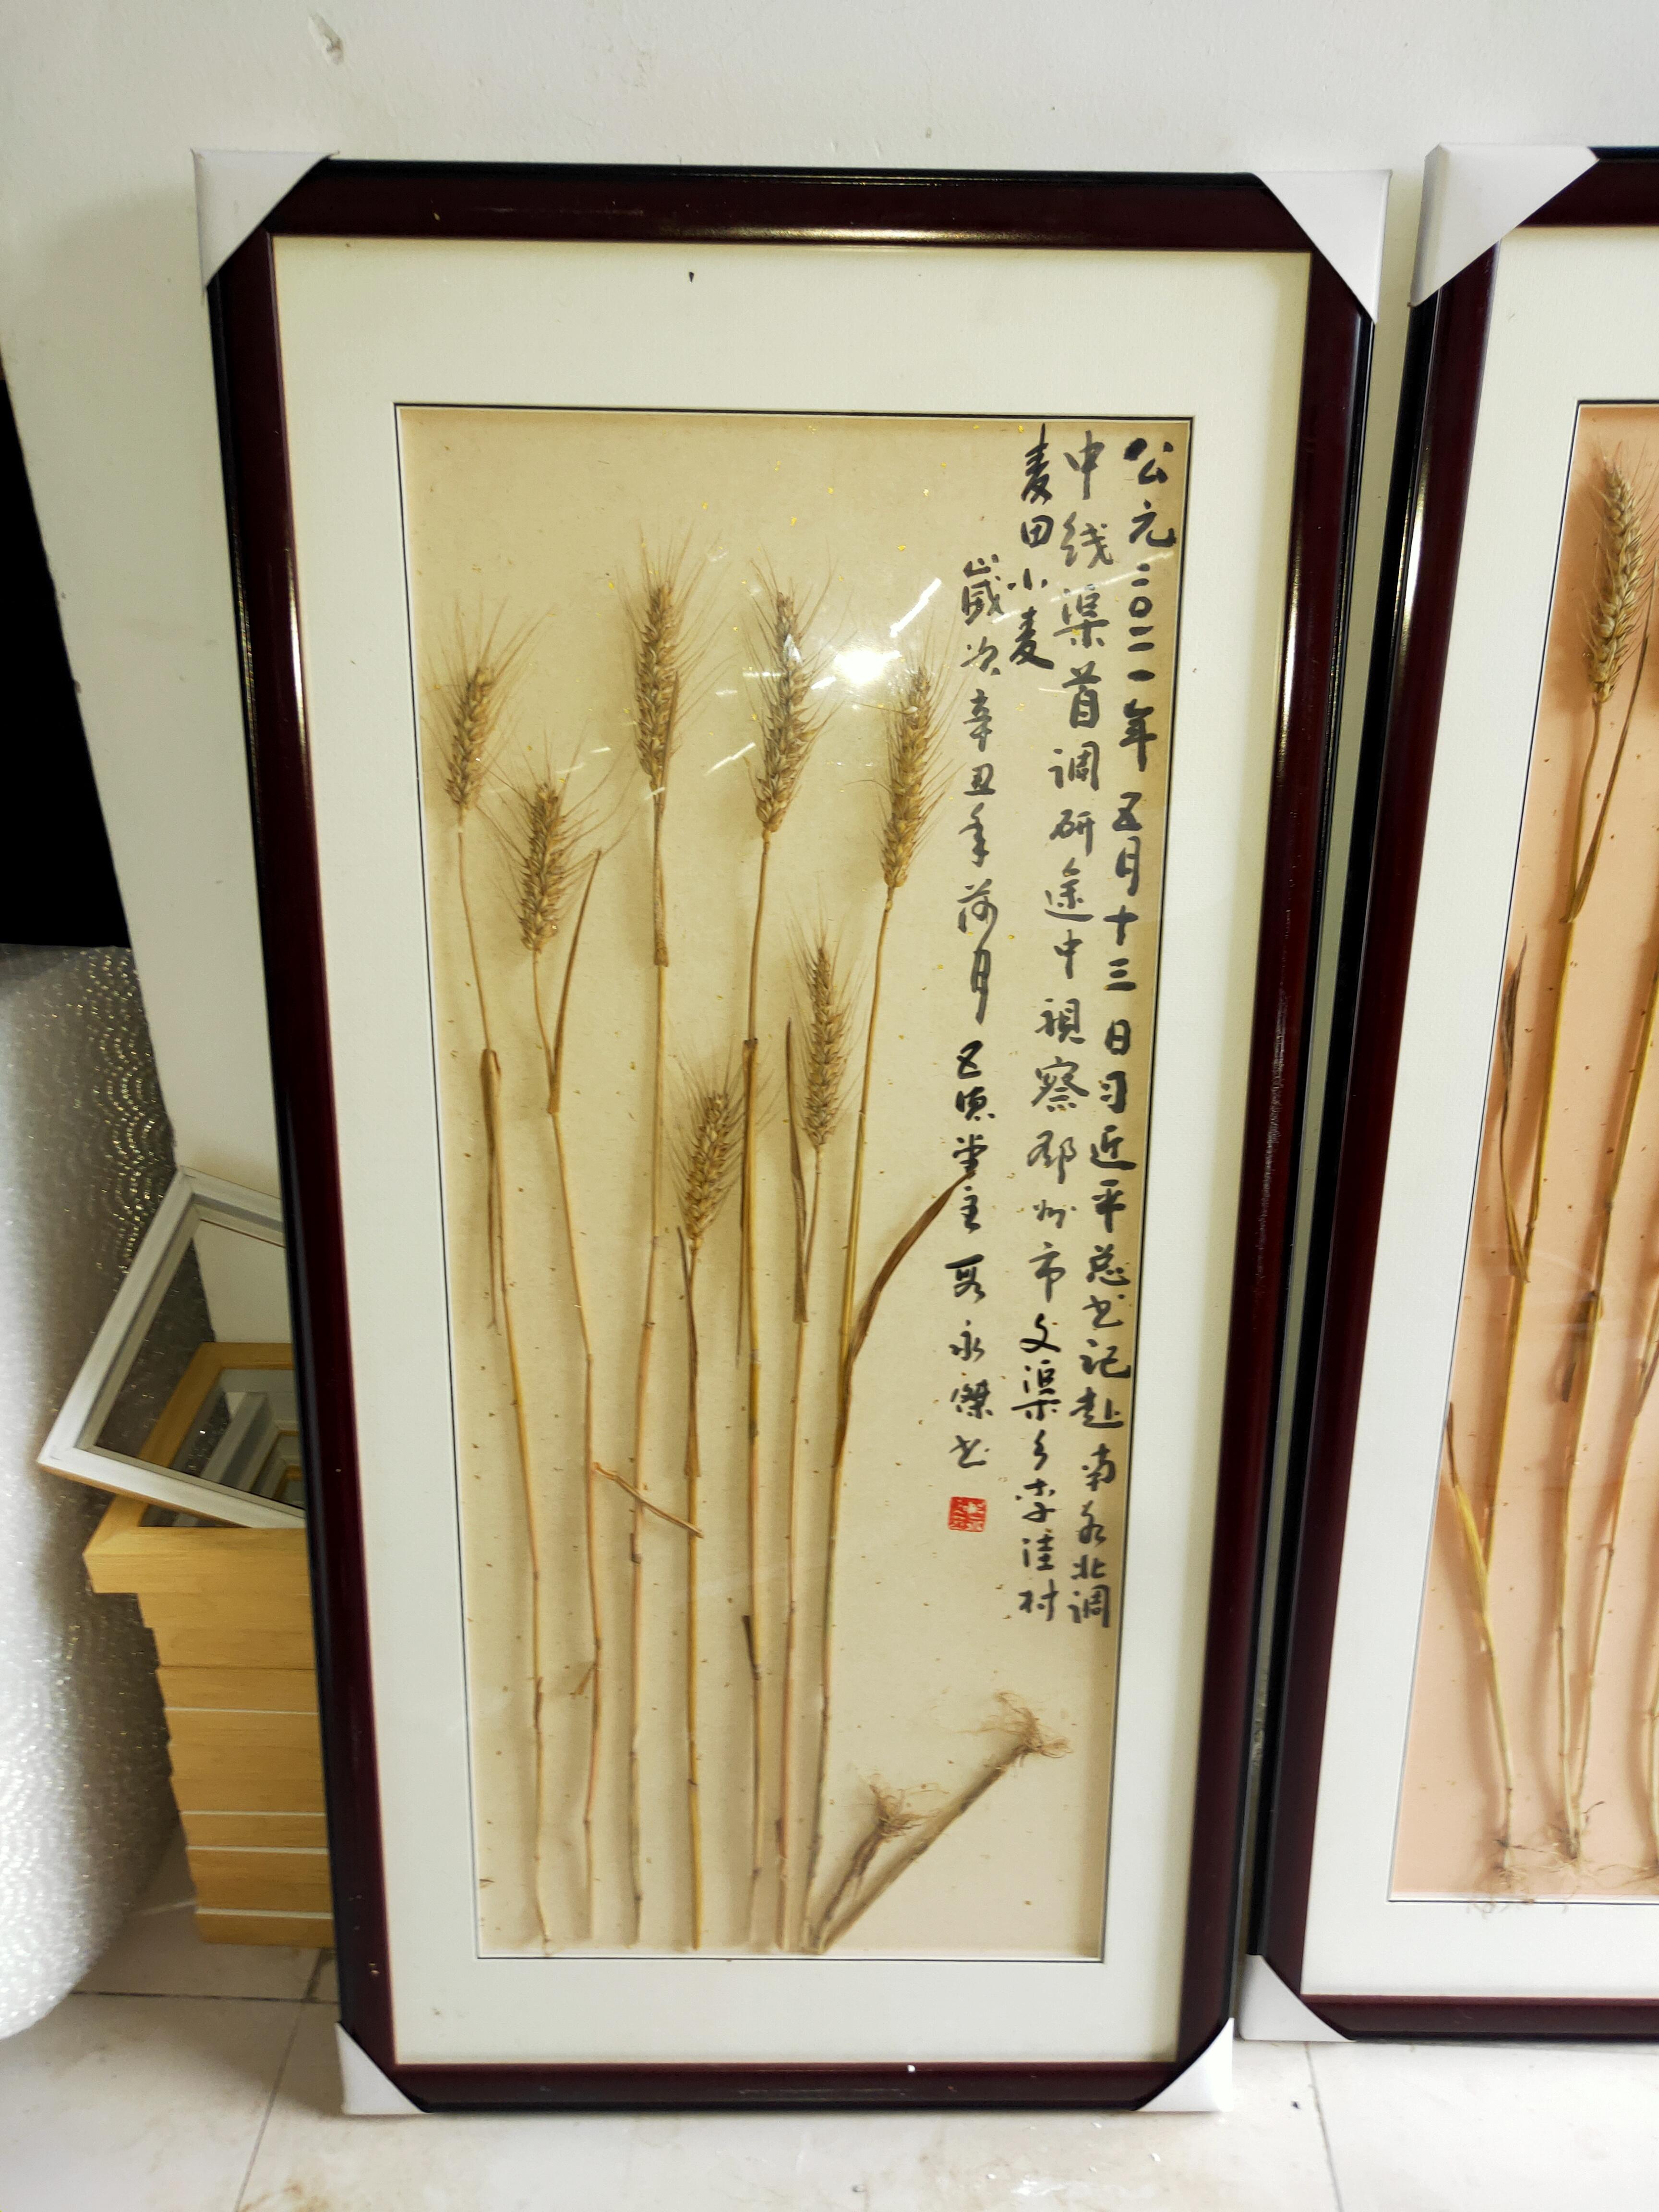 公元二〇二一年五月十三日习近平总书记赴南水北调
中线渠首调研途中视察邓州市文渠乡李洼村
麦田小麦
岁次辛丑年荷月五德堂主 永傑书